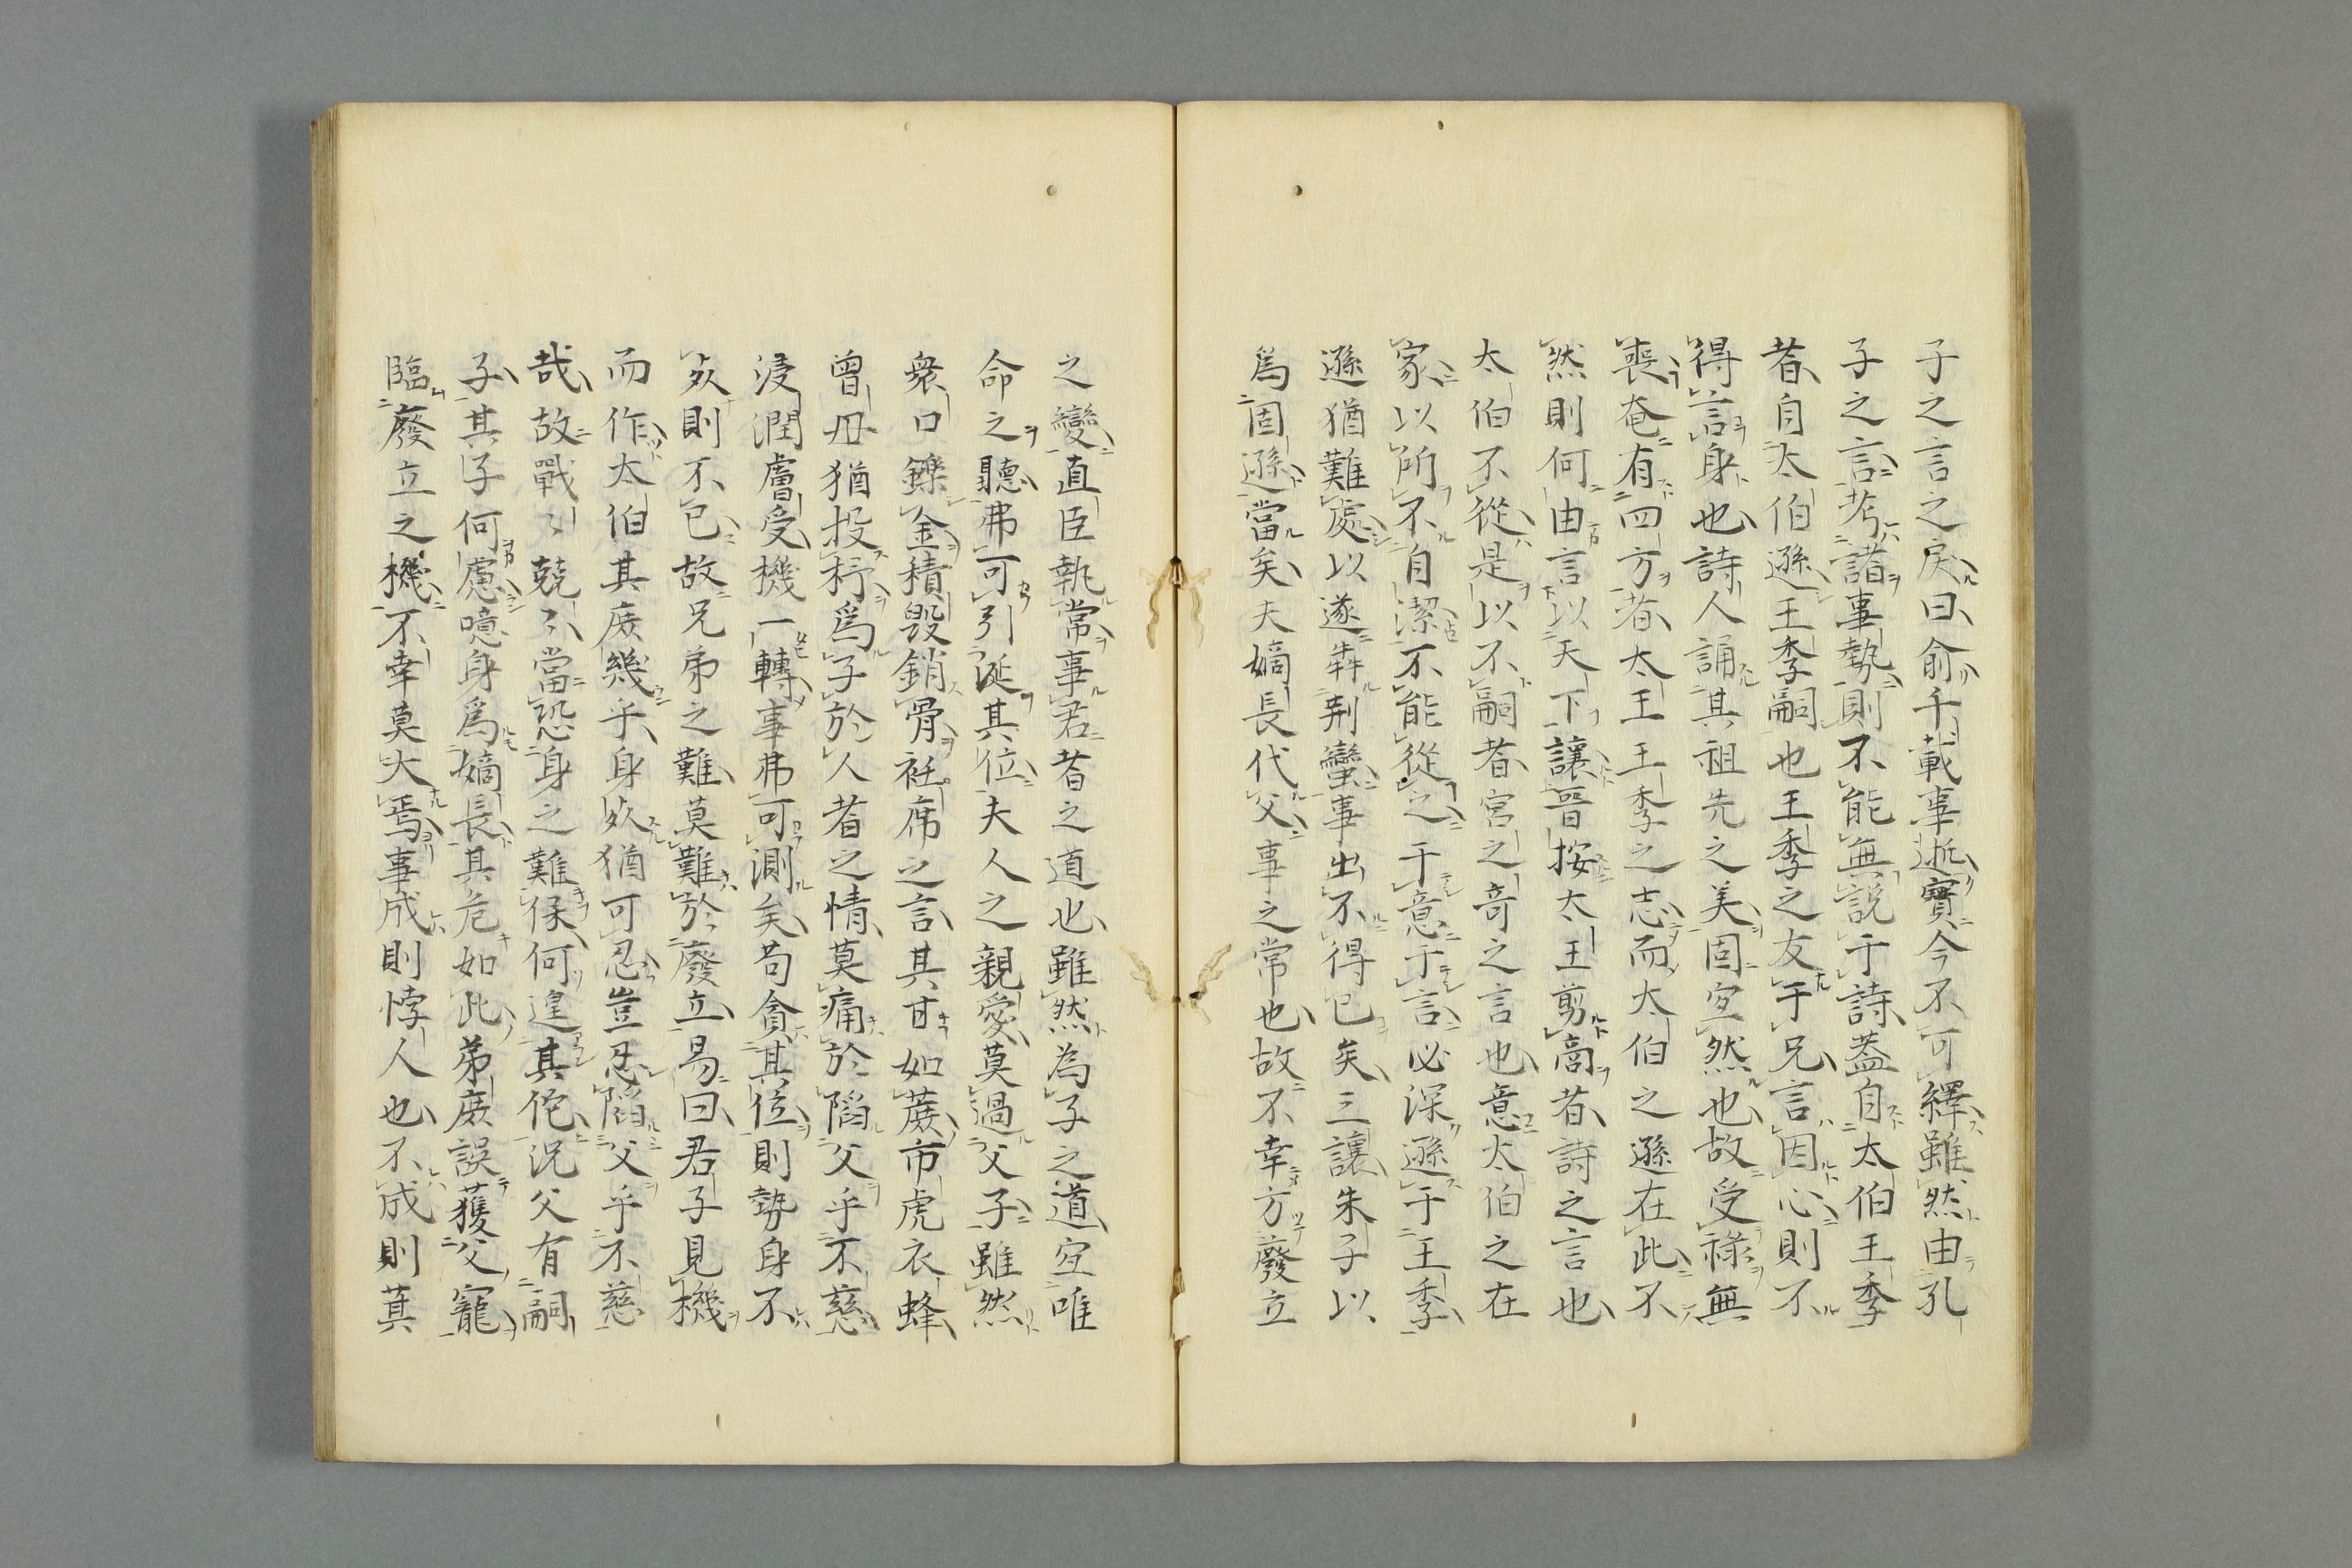 子之言之戾曰俞千載事逝寶今不可繹雖然由孔
子之言考諸事勢則不能無説于詩蓋自太伯王季
者自太伯遜王季嗣也王季之友于兄言因心則不
得言身也詩人誦其祖先之美固宜然也故受祿無
喪奄有四方者太王王季之志而太伯之遜在此不
然則何由言以天下讓晉按太王剪商者詩之言也
太伯不從是以不嗣者宮之奇之言也意太伯之在
家以所不自潔不能從之于意于言必深遜于王季
遜猶難處以遂犇荆蠻事出不得已矣三讓朱子以
爲固遜當矣夫嫡長代父事之常也故不幸方廢立
之變直臣執常事君者之道也雖然為子之道宜唯
命之聽弗可引涎其位夫人之親愛莫過父子雖然
衆口鑠金積毀銷骨衽席之言其甘如蔗市虎衣蜂
曾毋猶投杼爲子於人者之情莫痛於陷父乎不慈
浸潤膚受機一轉事弗可測矣苟貪其位則勢身不
死則不已故兄弟之難莫難於廢立易曰君子見機
而作太伯其庶幾乎身死猶可忍豈忍陷父乎不慈
哉故戰〻兢〻當恐身之難保何遑其佗況父有嗣
子其子何慮噫身爲嫡長其危如此弟庶誤獲父寵
臨廢立之機不幸莫大焉事成則悖人也不成則萁